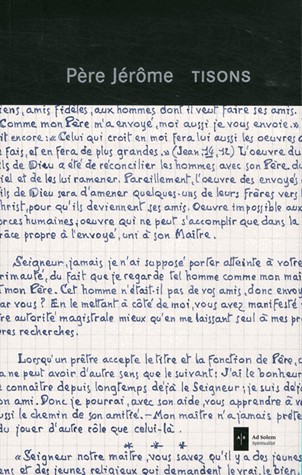 Père Jérôme TISONS
sens, amis fidèles, aux hommes dont il veut faire ses amis.
Comme mon Père m'a envoyé, moi aussi je vous envoie."
it encore: "Celui qui croit en moi fera lui aussi les oeuvres q
fais, et en fera de plus grandes." (Jean 14, 12). L'oeuvre du
ils de Dieu a été de réconcilier les hommes avec son Père du
iel et de les lui ramener. Pareillement, l'oeuvre des envoyés
ils de Dieu sera d'amener quelques-uns de leurs frères vers l
hrist, pour qu'ils deviennent ses amis. Oeuvre impossible aux
orces humaines; oeuvre qui ne peut s'accomplir que dans la
râce propre à l'envoyé, uni à son Maître.
Seigneur, jamais je n'ai supposé porter atteinte à votre
rimauté, du fait que je regarde tel homme comme mon maî
t mon Père. Cet homme n'était-il pas de vos amis, donc envoy
ar vous? En le mettant à côté de moi, vous avez manifesté
tre autorité magistrale mieux qu'en me laissant seul à mes pr
res recherches.
Lorsqu'un prêtre accepte le titre et la fonction de Père,
a ne peut avoir d'autre sens que le suivant: J'ai le bonheur
e connaître depuis longtemps déjà le Seigneur; je suis deu
on ami. Donc je pourrai, avec son aide, vous apprendre à v
ussi le chemin de son amitié. - Mon maître n'a jamais préte
du jouer d'autre rôle que celui-là.
* * *
"Seigneur notre maître, vous savez qu'il y a des jeunes
ens et des jeunes religieux qui demandent le vrai le bien
Ad Solem
spiritualité